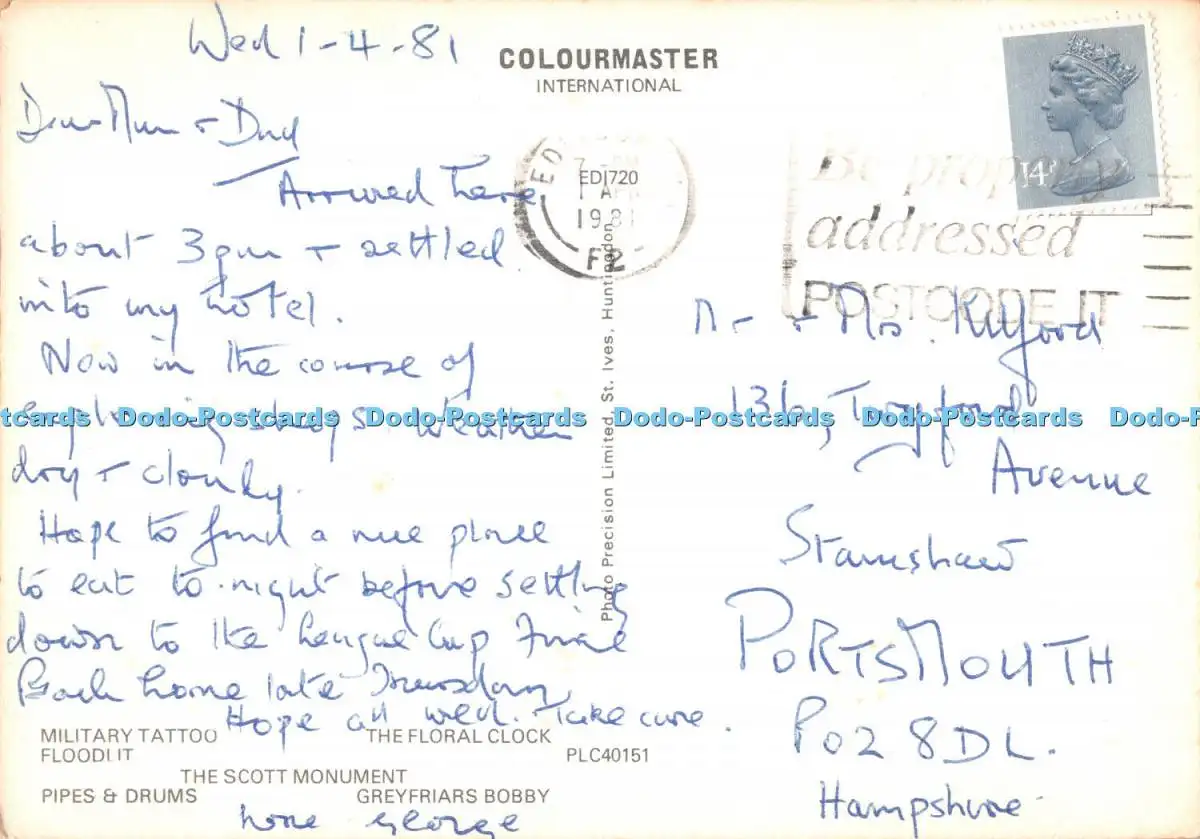 Wed 1-4-81
Dear Mum + Dad
Arrived here
about 3pm + settled
into my hotel.
Now in the course of
exploring shops. Weather
dry + cloudy.
Hope to find a nice place
to eat to-night before settling
down to the League Cup Final
Back home late Thursday
Hope all well. Take care.
love George
COLOURMASTER
INTERNATIONAL
14
ED
EDJ720
1 APR
1981
F2
Be properly
addressed
POSTCODE IT
Mr + Mrs. Kilford
136, Twyford
Avenue
Stamshaw
PORTSMOUTH
PO2 8DL.
Hampshire
Photo Precision Limited, St. Ives, Huntingdon
MILITARY TATTOO FLOODLIT
THE FLORAL CLOCK
PLC40151
THE SCOTT MONUMENT
PIPES & DRUMS
GREYFRIARS BOBBY
Dodo-Postcards Dodo-Postcards Dodo-Postcards Dodo-Postcards